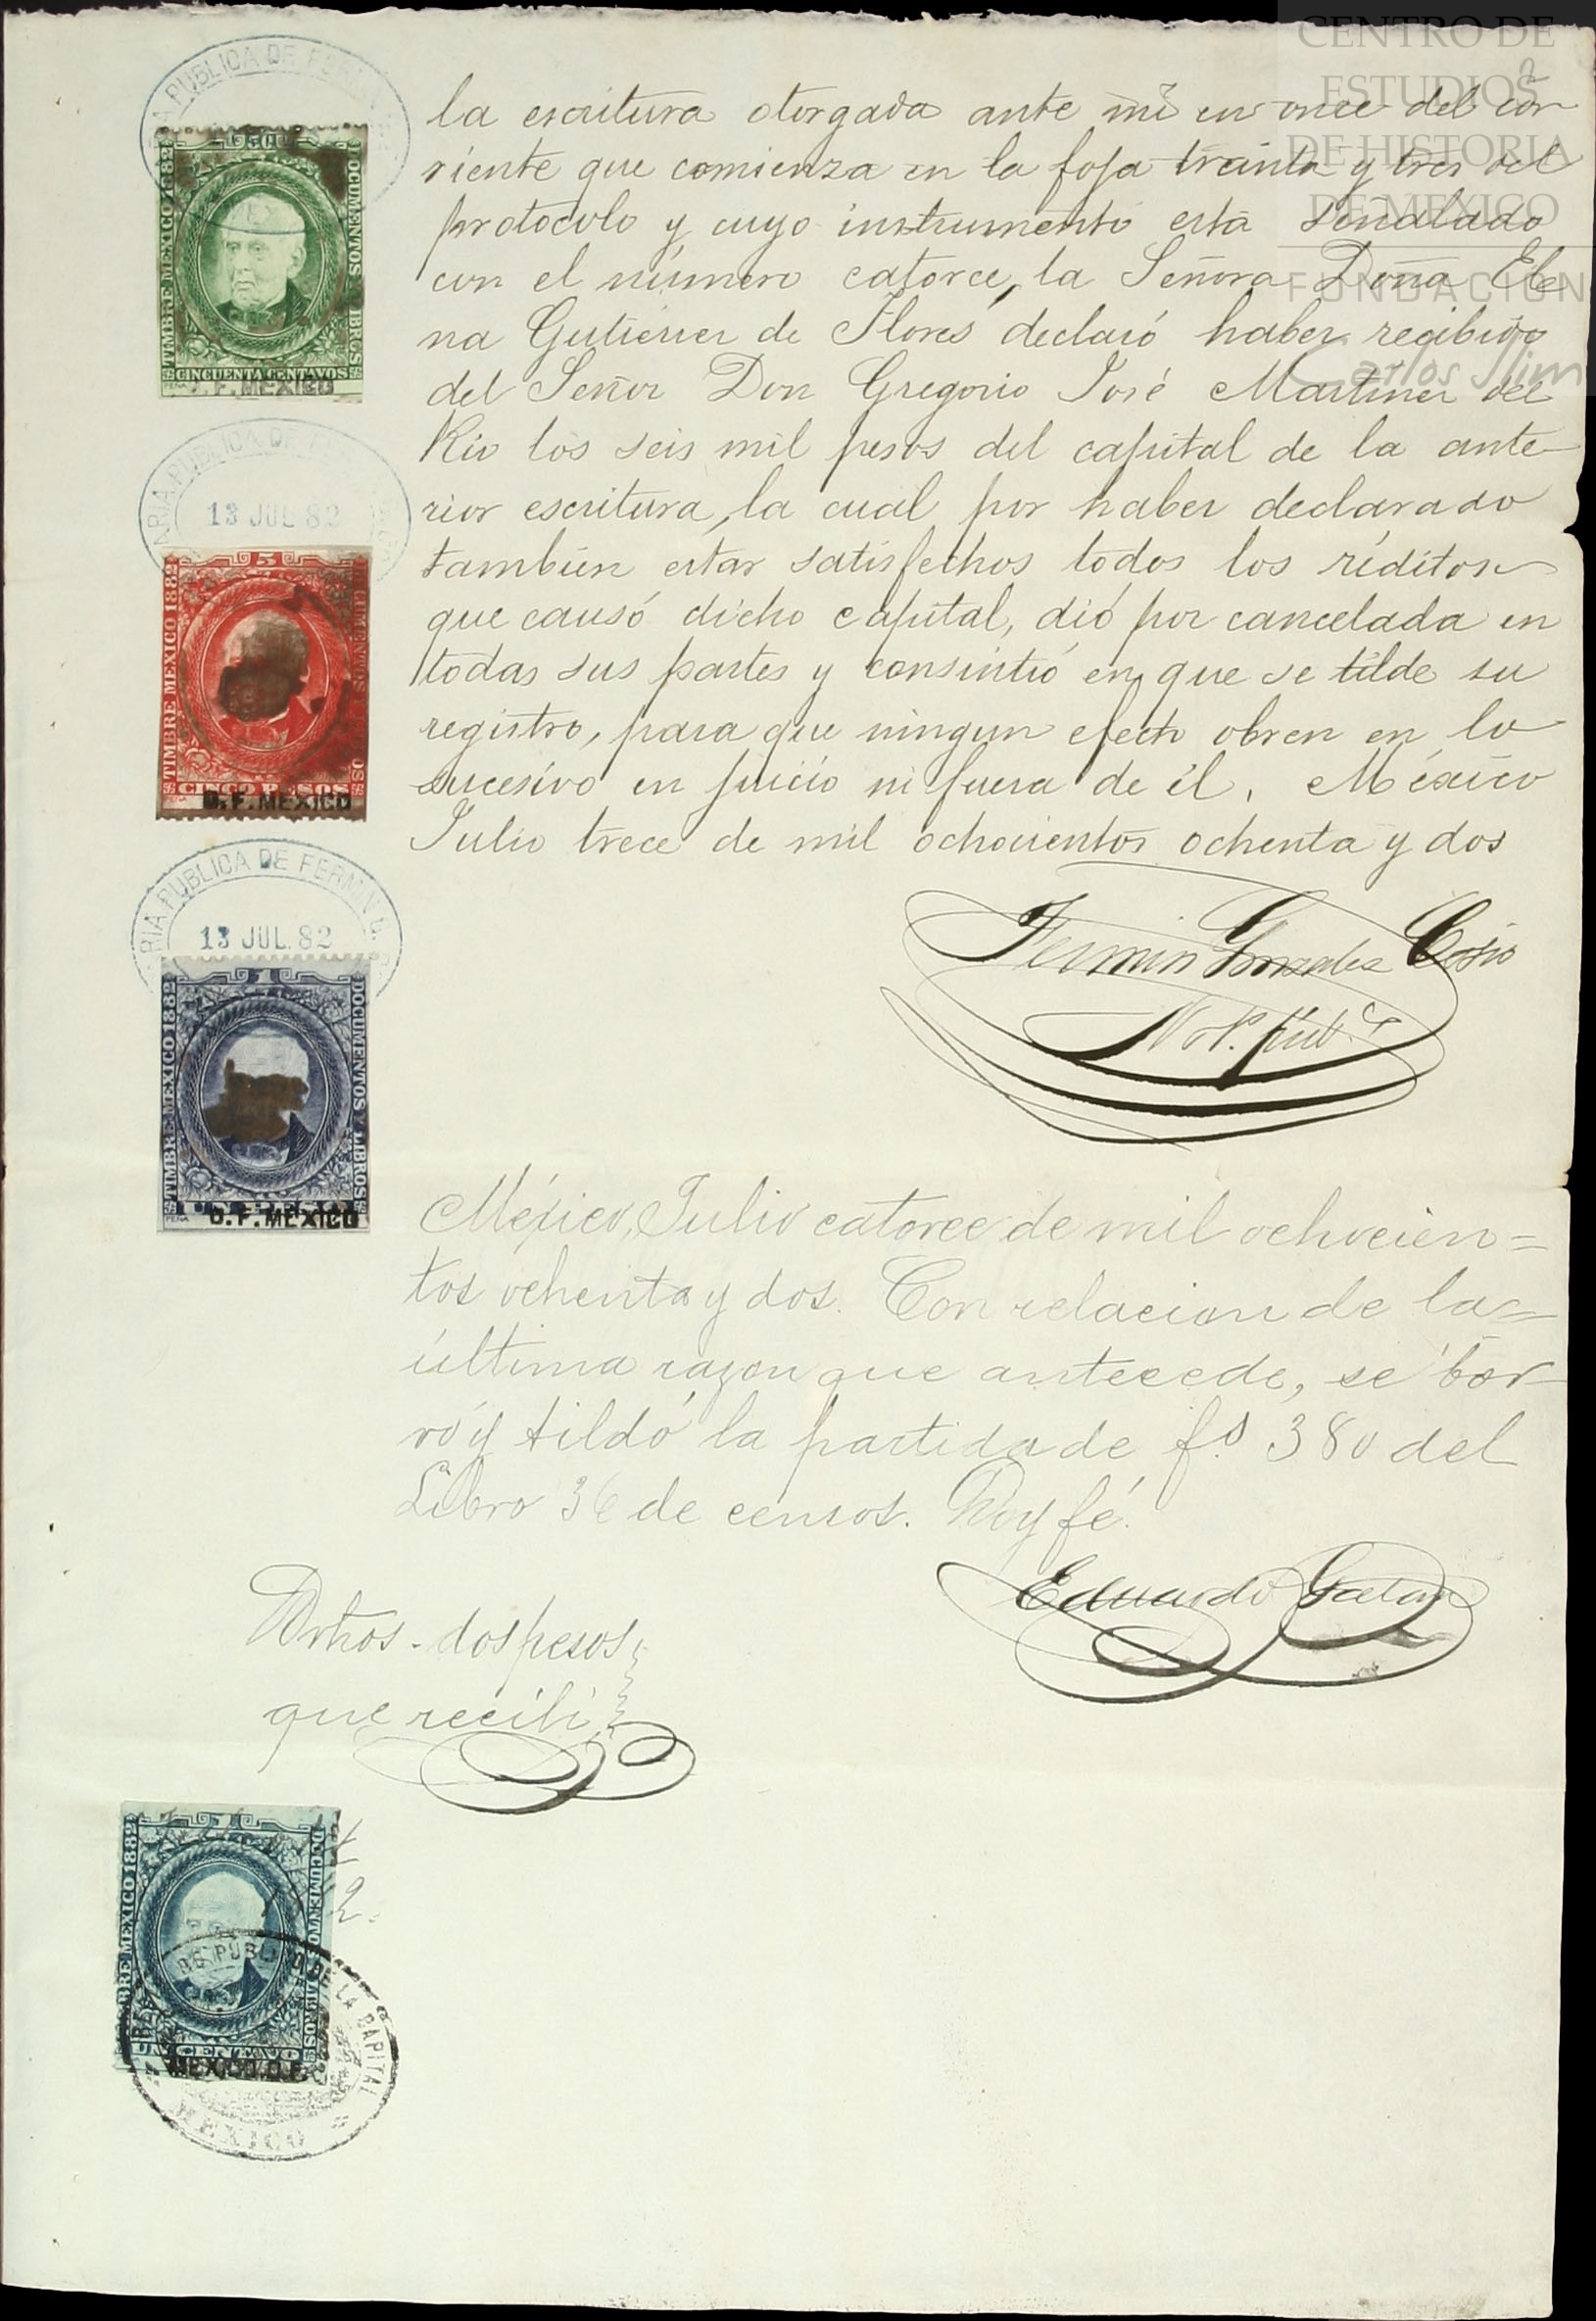 CENTRO DE
ESTUDIOS
DE HISTORIA
DE MEXICO
FUNDACION
Carlos Slim
la escritura otorgada ante mí en once del cor
riente que comienza en la foja treinta y tres del
protocolo y cuyo instrumento está señalado
con el número catorce, la Señora Doña Ele
na Gutierrez de Flores declaró haber recibido
del Señor Don Gregorio José Martinez del
Rio los seis mil pesos del capital de la ante
rior escritura, la cual por haber declarado
tambien estar satisfechos todos los réditos
que causó dicho capital, dió por cancelada en
todas sus partes y consintió en que se tilde su
registro, para que ningun efecto obren en lo
sucesivo en juicio ni fuera de él. México
Julio trece de mil ochocientos ochenta y dos
Fermin Gonzalez Cosio
Not. púb.
México, Julio catorce de mil ochocien=
tos ochenta y dos. Con relacion de la=
última razon que antecede, se bor
ró y tildó la partida de fs 380 del
Libro 36 de censos. Doy fé.
Eduardo Galan
Drhos. dos pesos
que recibi
PUBLICA DE
TIMBRE MEXICO 1882
DOCUMENTOS Y LIBROS
CINCUENTA CENTAVOS
D.F. MEXICO
ARIA PUBLICA DE
13 JUL 82
5
TIMBRE MEXICO 1882
CINCO PESOS
D.F. MEXICO
RIA PUBLICA DE FERMIN G.
13 JUL. 82
1
TIMBRE MEXICO 1882
DOCUMENTOS Y LIBROS
UN PESO
D.F. MEXICO
TIMBRE MEXICO 1882
DOCUMENTOS Y LIBROS
UN CENTAVO
MEXICO D.F.
PUBLICO DE LA CAPITAL
MEXICO